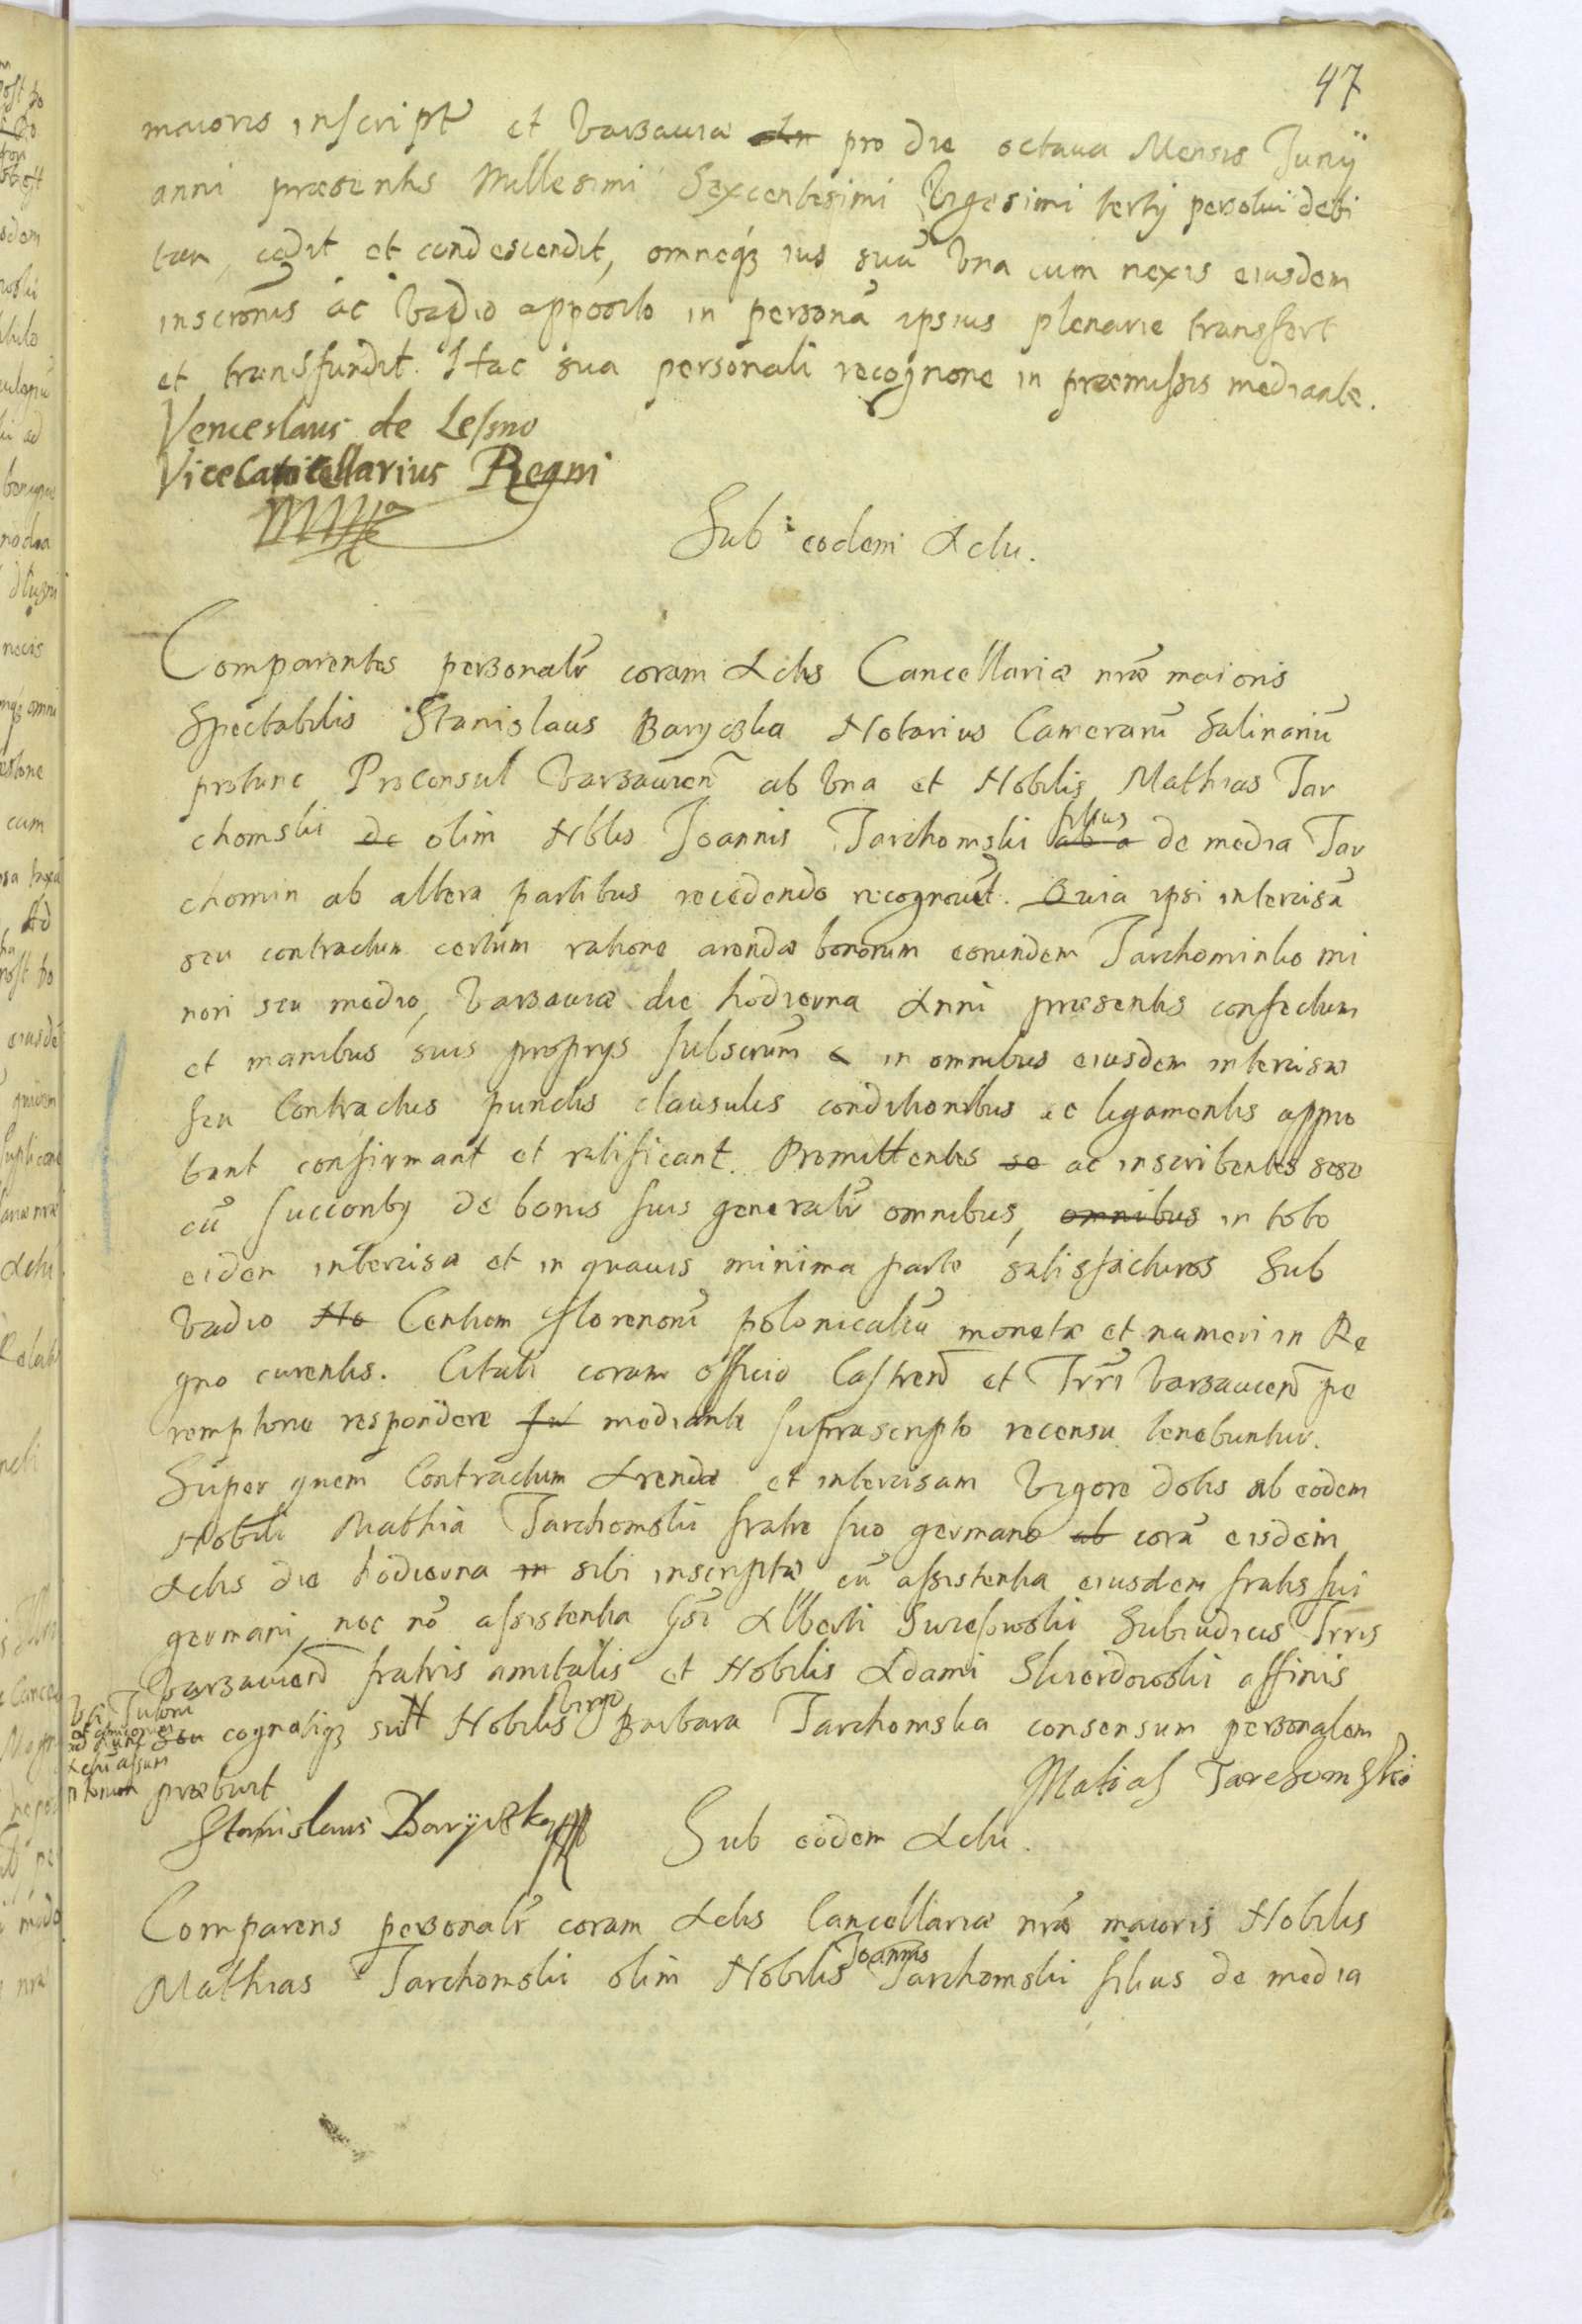 47
maioris inscript et Varsauiæ pro die octaua Mensis Junij
anni præsentis Millesimi Sexcentesimi Vigesimi tertij persolui debi
tam, cedit et condescendit, omneqз ius suũ Vna cum nexis eiusdem
inscronis ac Vadio apposito in personã ipsius plenarie transfert
et transfundit. Hac sua personali recognone in præmissis mediante.
Venceslaus de Leszno
ViceCancellarius Regni
Sub eodem Actu.
Comparentes personalr coram Actis Cancellariæ nræ maioris
Spectabilis Stanislaus Baryczka Notarius Camerarũ Salinariũ
protunc Proconsul Varsauien ab Vna et Nobilis Mathias Tar
chomski de olim Nblis Joannis Tarchomski filius ab a de media Tar
chomin ab altera partibus recedendo recognouert. Quia ipsi intercisã
seu contractum certum ratione arendæ bonorum eorundem Tarchominko mi
nori seu medio, Varsauiæ die hodierna Anni præsentis confectum
et manibus suis proprijs subscrum in omnibus eiusdem intercisæ
seu Contractus punctis clausulis conditionibus ac ligamentis appro
bant confirmant et ratificant. Promittentes se ac inscribentes sese
cũ succonby de bonis suis generalr omnibus, omnibus in toto
eidem intercisæ et in quauis minima parte satisfacturos Sub
Vadio No Centum florenorũ polonicaliũ monetæ et numeri in Re
gno curentis. Citati coram officio Castren et Trri Varsauien pe
remptorie respondere mediante suprascripto recensu tenebuntur.
Super quem Contractum Arendæ et intercisam Vigore dotis ab eodem
Nobili Mathia Tarchomski fratre suo germano ab corã eisdem
Actis die hodierna in sibi inscriptæ cũ assistentia eiusdem fratris sui
germani, nec nõ assistentia Gsi Alberti Suieszewski Subiudicis Trris
Varsauien fratris amitalis et Nobilis Adami Skierdowski affinis
Vti Tutoru
et amicorum
ad hunc
Actũ assum
ptorum
seu cognatiqз suit Nobilis Virgo Barbara Tarchomska consensum personalem
præbuit
Matias Tarchomskÿ
Stanislaus Baryczka
Sub eodem Actu.
Comparens personalr coram Actis Cancellariæ nræ maioris Nobilis
Mathias Tarchomski olim Nobilis Joannis Tarchomski filius de media